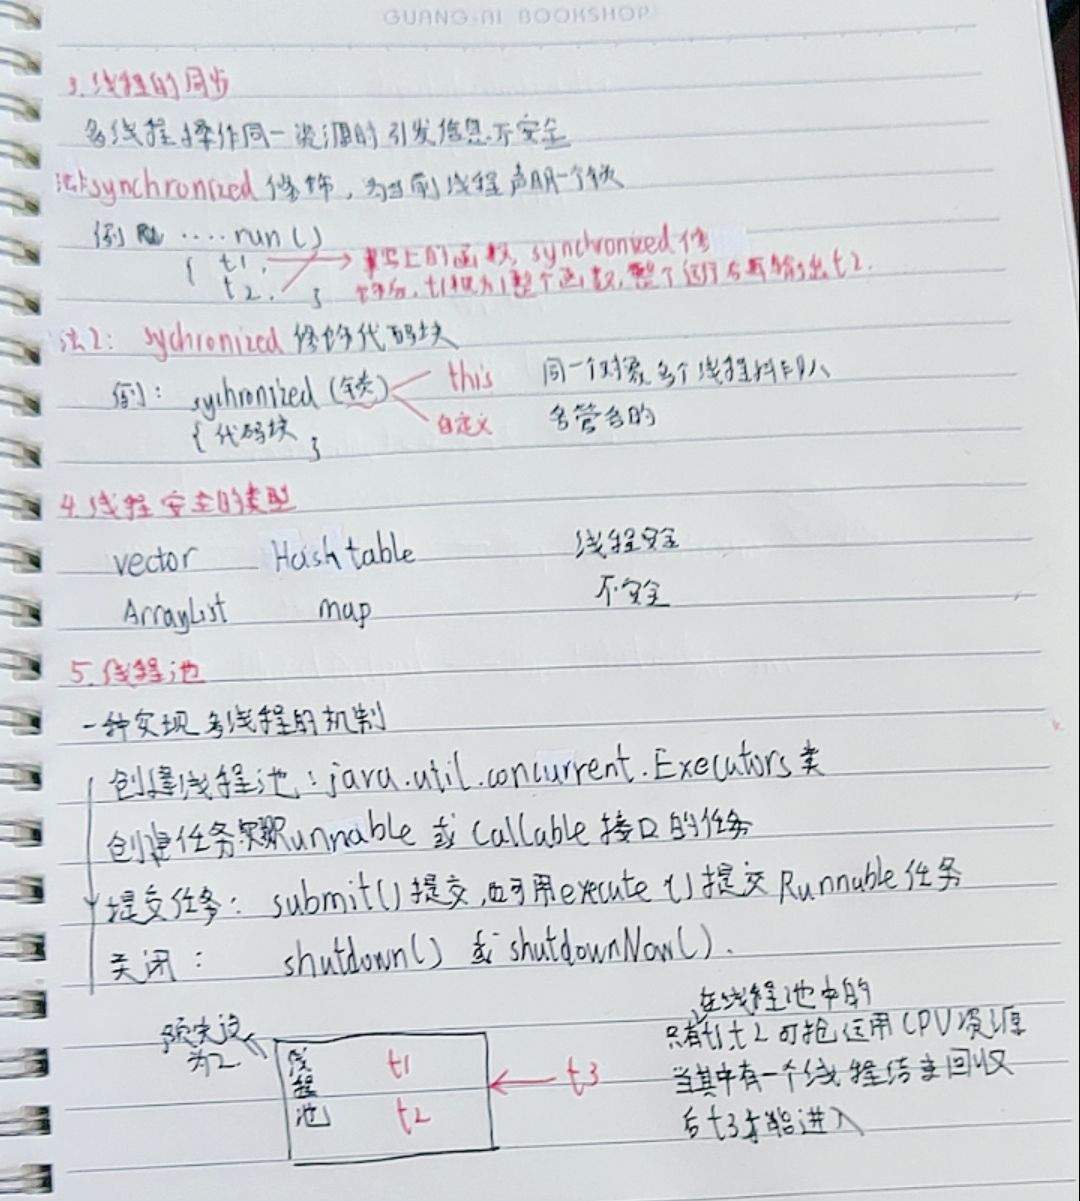 GUANG·AI BOOKSHOP
3.线程的同步
多线程操作同一资源时引发信息不安全
法1:synchronized修饰,为当前线程声明一个锁
例 ....run()
{ t1. → 写上的函数, synchronized修
t2. } 饰后,t1视为1整个函数,整个运行后再输出t2.
法2: sychronized修饰代码块
例: sychronized(锁) this 同一个对象多个线程排队
{代码块 } 自定义 各管各的
4.线程安全的类型
vector Hashtable 线程安全
ArrayList map 不安全
5.线程池
一种实现多线程的机制
创建线程池:java.util.concurrent.Executors类
创建任务:实现Runnable或Callable接口的任务
提交任务: submit()提交,也可用execute()提交Runnable任务
关闭: shutdown()或shutdownNow().
预先设
为2.
线程池 t1
t2
← t3
在线程池中的
只有t1,t2可抢运用CPU资源
当其中有一个线程结束回收
后t3才能进入